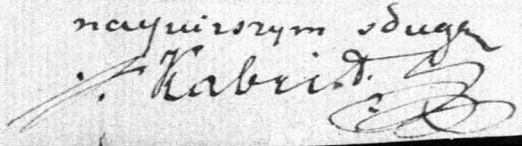 nayuirszym sługą
F. Kabrit.